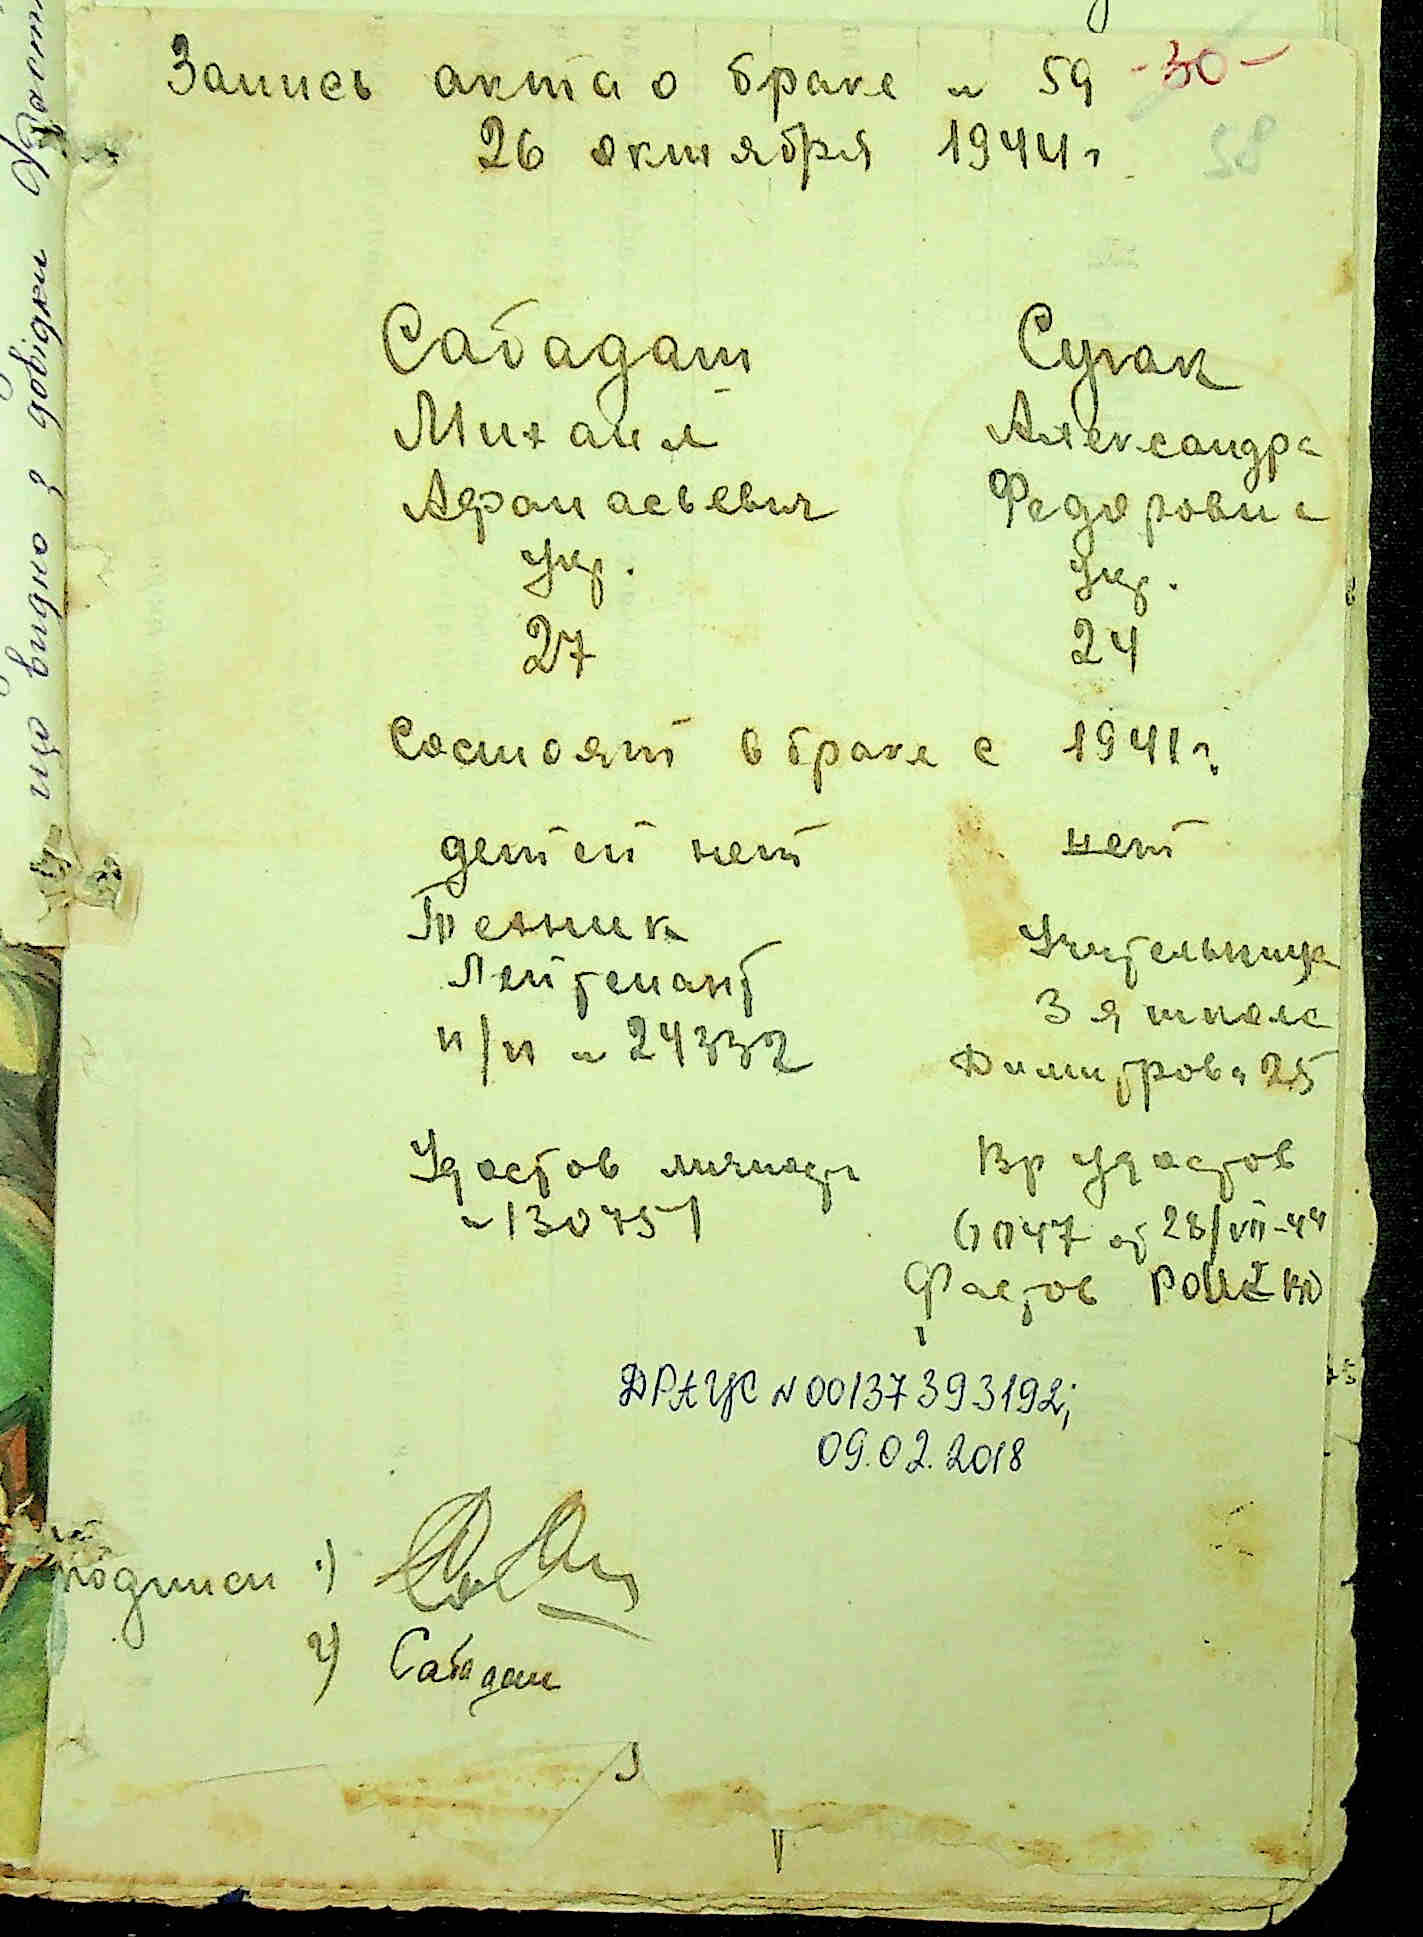 Запись акта о браке № 59 -30-
26 октября 1944 г
58
Сабадаш Сугак
Михаил Александра
Афанасьевич Федоровна
Укр. Укр.
27 24
Состоят в браке с 1941 г.
детей нет нет
Техник Учительница
Лейтенант 3 я школа
п/п № 24332 Димитрова 25
Удостов личности Вр удостов
№ 130751 6П47 от 28/VII-44
Фастов
ДРАЦС N 00137393192;
09.02.2018
подписи 1)
2) Сабадаш
що видно з довідки